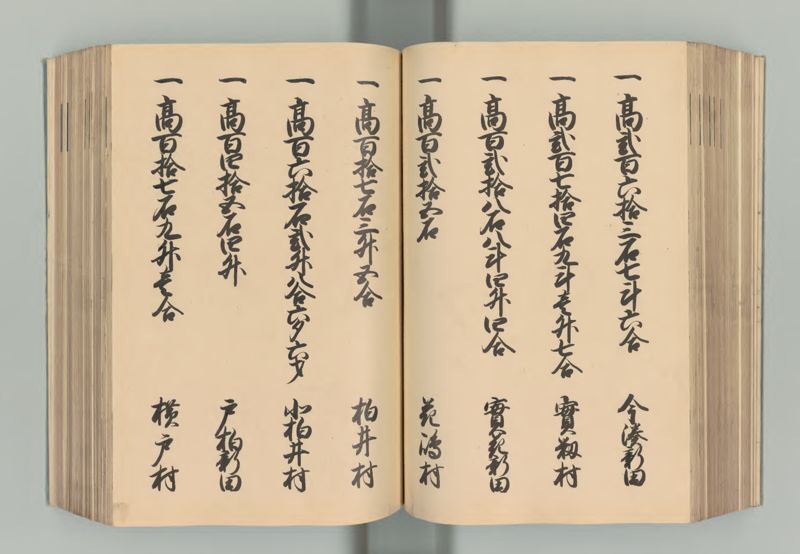 一 高弐百六拾三石七斗六合 今湊新田
一 高弐百七拾四石九斗壱升七合 實籾村
一 高百弐拾八石八斗四升四合 實籾新田
一 高百弐拾五石 花嶋村
一 高百拾七石三升五合 柏井村
一 高百六拾石弐升八合六夕六才 北柏井村
一 高百四拾五石四升 戸柏新田
一 高百拾七石九升壱合 横戸村